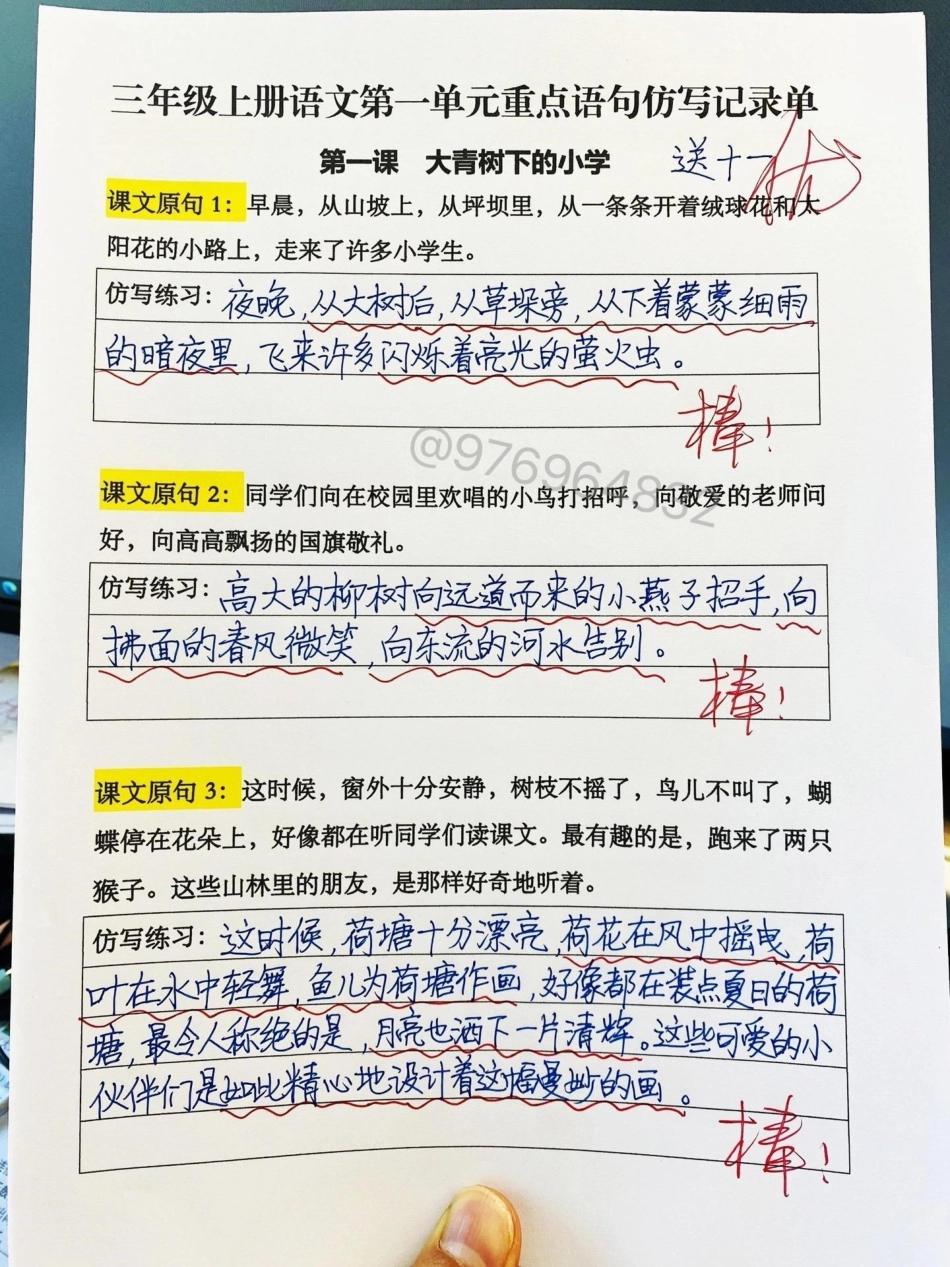 三年级上册语文第一单元重点语句仿写记录单
第一课 大青树下的小学
送十一
优
课文原句 1：早晨，从山坡上，从坪坝里，从一条条开着绒球花和太
阳花的小路上，走来了许多小学生。
仿写练习：夜晚，从大树后，从草垛旁，从下着蒙蒙细雨
的暗夜里，飞来许多闪烁着亮光的萤火虫。
棒！
@976964832
课文原句 2：同学们向在校园里欢唱的小鸟打招呼，向敬爱的老师问
好，向高高飘扬的国旗敬礼。
仿写练习：高大的柳树向远道而来的小燕子招手，向
拂面的春风微笑，向东流的河水告别。
棒！
课文原句 3：这时候，窗外十分安静，树枝不摇了，鸟儿不叫了，蝴
蝶停在花朵上，好像都在听同学们读课文。最有趣的是，跑来了两只
猴子。这些山林里的朋友，是那样好奇地听着。
仿写练习：这时候，荷塘十分漂亮，荷花在风中摇曳，荷
叶在水中轻舞，鱼儿为荷塘作画，好像都在装点夏日的荷
塘，最令人称绝的是，月亮也洒下一片清辉。这些可爱的小
伙伴们是如此精心地设计着这幅曼妙的画。
棒！